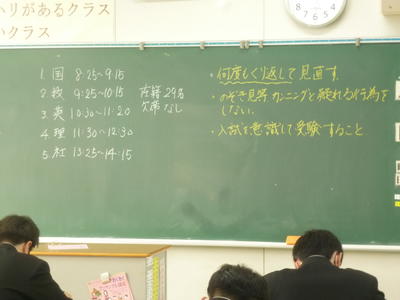 ハリがあるクラス
いクラス
1. 国 8:25~9:15
2. 数 9:25~10:15
3. 英 10:30~11:20
4. 理 11:30~12:30
5. 社 13:25~14:15
在籍 29名
欠席 なし
・何度もくり返して見直す。
・のぞき見等カンニングと疑われる行為を
しない。
・入試を意識して受験すること